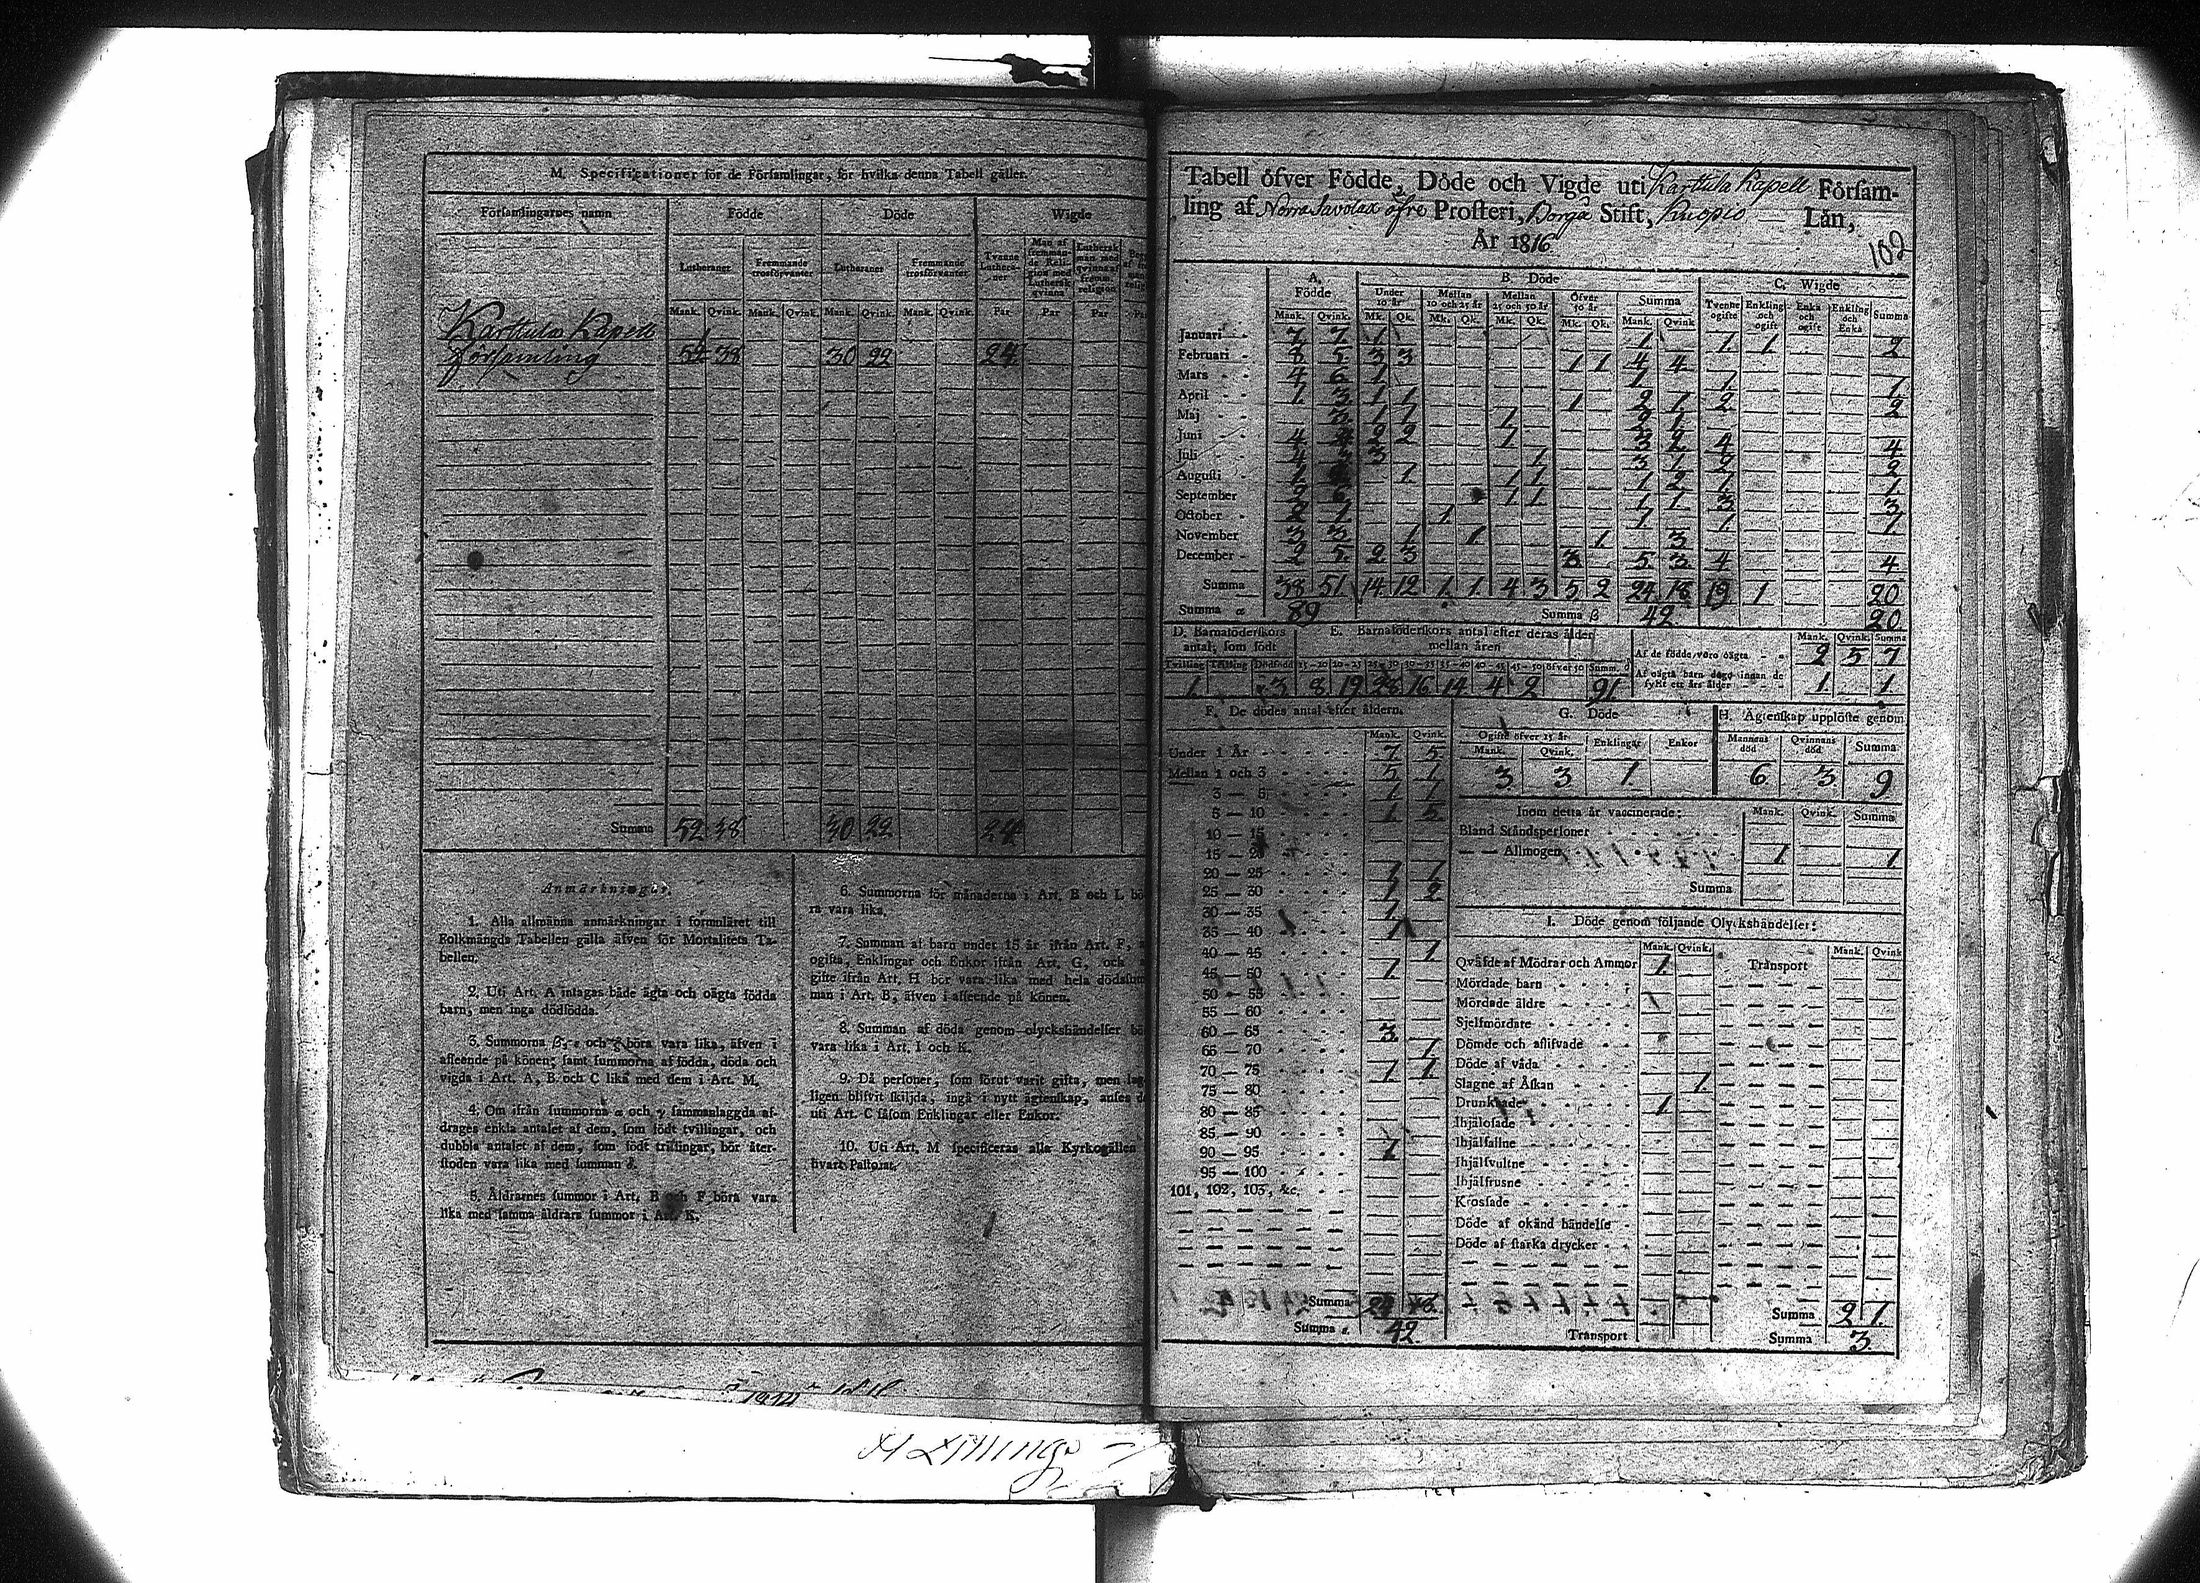 M. Specificationer för de Församlingar, för hvilka denna Tabell gäller.
Församlingarnes namn Födde Döde Wigde
Lutheraner Fremmande trosförvanter Lutheraner Fremmande trosförvanter Tvenne Lutheraner
Mank. Qvink. Mank. Qvink. Mank. Qvink. Mank. Qvink. Par Par Par
Karttula Kapell
Församling 52 38 30 22 24
Summa 52 38 30 22 24
Anmärkningar.
1. Alla allmänna anmärkningar i formuläret till
Folkmängds Tabellen gälla äfven för Mortalitets Ta-
bellen.
2. Uti Art. A intagas både ägta och oägta födda
barn, men inga dödfödda.
3. Summorna β, ε och ζ böra vara lika, äfven i
afseende på könen; samt summorna af födda, döda och
vigda i Art. A, B och C lika med dem i Art. M.
4. Om ifrån summorna α och γ sammanlaggda af-
drages enkla antalet af dem, som födt tvillingar, och
dubbla antalet af dem, som födt trillingar, bör åter-
stoden vara lika med summan δ.
5. Åldrarnes summor i Art. B och F böra vara
lika med samma åldrars summor i Art. K.
6. Summorna för månaderna i Art. B och L bö
ra vara lika.
7. Summan af barn under 15 år ifrån Art. F,
ogifta, Enklingar och Enkor ifrån Art. G, och
gifte ifrån Art. H bör vara lika med hela dödssum
man i Art. B, äfven i afseende på könen.
8. Summan af döda genom olyckshändelser bö
vara lika i Art. I och K.
9. Då personer, som förut varit gifta, men lag
ligen blifvit skiljda, ingå i nytt ägtenskap, anses d
uti Art. C såsom Enklingar eller Enkor.
10. Uti Art. M specificeras alla Kyrkogällen
hvart Pastorat.
Tabell öfver Födde, Döde och Vigde uti Karttula Kapell Försam-
ling af Norra Savolax öfre Prosteri, Borgå Stift, Kuopio Län,
År 1816
102
A. Födde B. Döde C. Wigde
Under 10 år Mellan 10 och 25 år Mellan 25 och 50 år Öfver 50 år Summa Tvenne ogifte Enkling och ogift Enka och ogift Enkling och Enka Summa
Mank. Qvink. Mk. Qk. Mk. Qk. Mk. Qk. Mk. Qk. Mank. Qvink
Januari 7 7 1 1 1 1 2
Februari 8 5 3 3 1 1 4 4
Mars 4 6 1 1 1 1
April 1 3 1 1 1 2 1 2 2
Maj 3 1 1 1 2 1
Juni 4 2 2 1 3 2 4 4
Juli 3 1 3 1 2 2
Augusti 1 1 1 1 1 2 1 1
September 2 6 1 1 1 1 3 3
October 2 1 1 1 1 1
November 3 3 1 1 1 3
December 2 5 2 3 3 5 3 4 4
Summa 38 51 14 12 1 1 4 3 5 2 24 18 19 1 20
Summa α 89 Summa β 42 20
D. Barnaföderskors antal, som födt
Tvilling Trilling Dödfödd
1 3
E. Barnaföderskors antal efter deras ålder mellan åren
15-20 20-25 25-30 30-35 35-40 40-45 45-50 öfver 50 Summ. δ
8 19 28 16 14 4 2 91
Mank. Qvink. Summa
Af de födde voro oägta 2 5 7
Af oägta barn dogo innan de fyllt ett års ålder 1 1
F. De dödes antal efter åldern.
Mank. Qvink.
Under 1 År 7 5
Mellan 1 och 3 5 1
3 — 5 1 1
5 — 10 1 5
10 — 15
15 — 20
20 — 25 1 1
25 — 30 1 2
30 — 35 1
35 — 40 1
40 — 45 1
45 — 50 1
50 — 55
55 — 60
60 — 65 3
65 — 70 1
70 — 75 1 1
75 — 80
80 — 85
85 — 90
90 — 95 1
95 — 100
101, 102, 103, &c.
Summa 24 18
Summa ε. 42
G. Döde
Ogifte öfver 15 år Enklingar Enkor
Mank. Qvink.
3 3 1
H. Ägtenskap upplöste genom
Mannens död Qvinnans död Summa
6 3 9
Inom detta år vaccinerade: Mank. Qvink. Summa
Bland Ståndspersoner
— — Allmogen 1 1
Summa
I. Döde genom följande Olyckshändelser:
Mank. Qvink. Mank. Qvink
Qväfde af Mödrar och Ammor 1 Transport
Mördade barn
Mördade äldre
Sjelfmördare
Dömde och aflifvade
Döde af våda
Slagne af Åskan 1
Drunknade 1
Ihjälofade
Ihjälfallne
Ihjälfvultne
Ihjälfrusne
Krossade
Döde af okänd händelse
Döde af starka drycker
Summa 2 1
Transport Summa 3